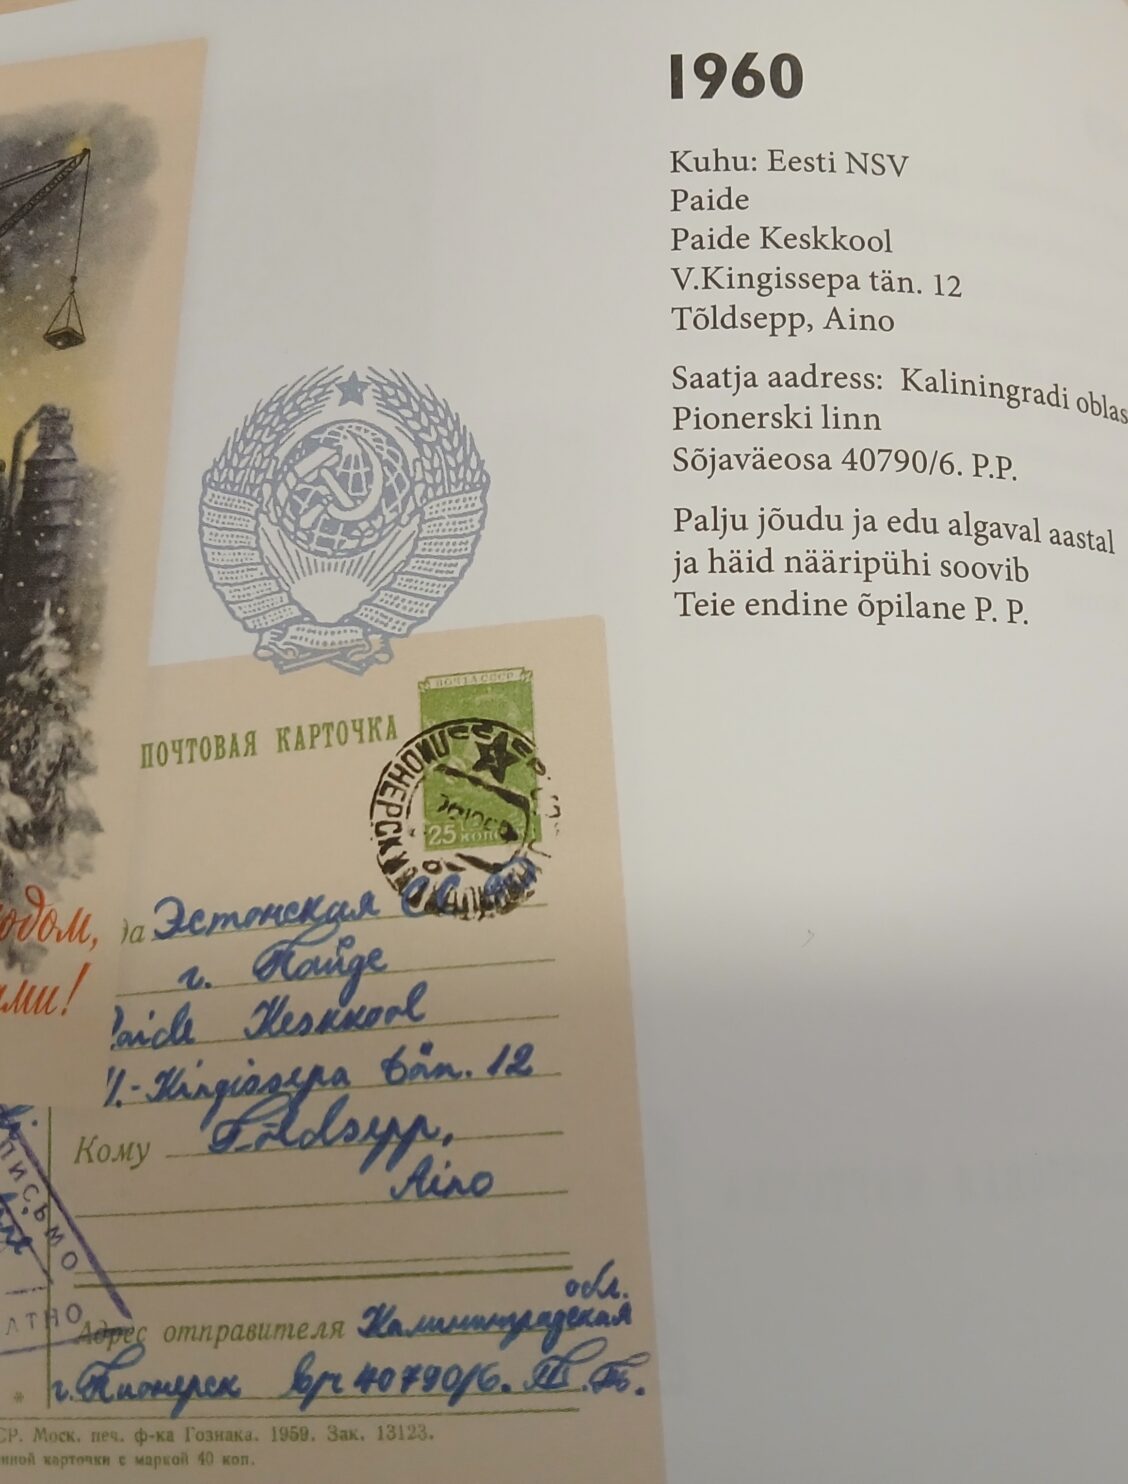 1960
Kuhu: Eesti NSV
Paide
Paide Keskkool
V.Kingissepa tän. 12
Tõldsepp, Aino
Saatja aadress: Kaliningradi oblas
Pionerski linn
Sõjaväeosa 40790/6. P.P.
Palju jõudu ja edu algaval aastal
ja häid nääripühi soovib
Teie endine õpilane P. P.
ПОЧТА СССР
ПОЧТОВАЯ КАРТОЧКА
25 коп
ПИОНЕРСК
одом,
ами!
да Эстонская ССР
г. Пайде
Paide Keskkool
V.-Kingissepa tän. 12
Кому Tõldsepp,
Aino
ПИСЬМО
АТНО
обл.
Адрес отправителя Калининградская
г. Пионерск в/ч 40790/6. П.П.
СР. Моск. печ. ф-ка Гознака. 1959. Зак. 13123.
нной карточки с маркой 40 коп.